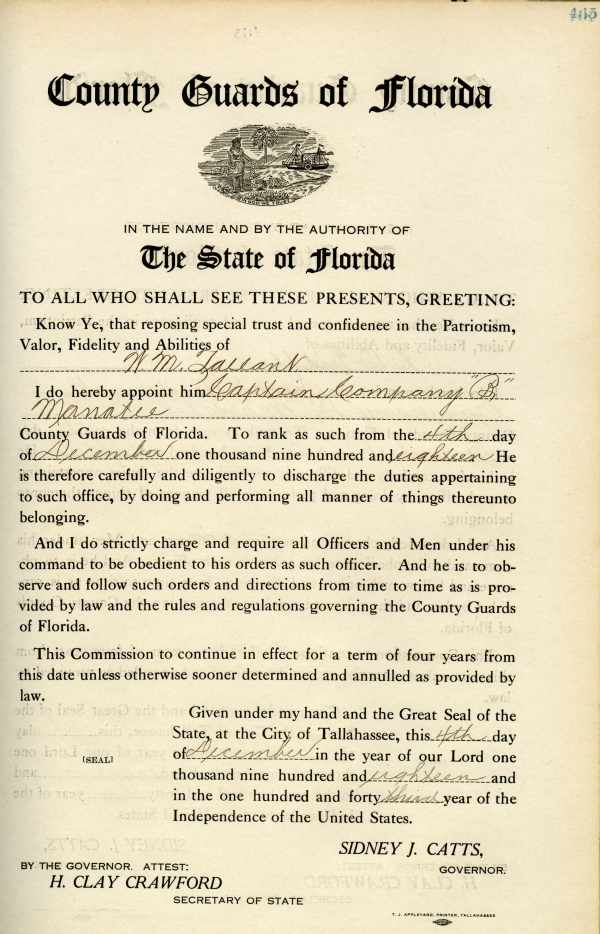 465
County Guards of Florida
IN GOD WE TRUST
IN THE NAME AND BY THE AUTHORITY OF
The State of Florida
TO ALL WHO SHALL SEE THESE PRESENTS, GREETING:
Know Ye, that reposing special trust and confidenee in the Patriotism,
Valor, Fidelity and Abilities of
W. M. Tallant
I do hereby appoint him Captain Company "B,"
Manatee
County Guards of Florida. To rank as such from the 4th day
of December one thousand nine hundred and eighteen He
is therefore carefully and diligently to discharge the duties appertaining
to such office, by doing and performing all manner of things thereunto
belonging.
And I do strictly charge and require all Officers and Men under his
command to be obedient to his orders as such officer. And he is to ob-
serve and follow such orders and directions from time to time as is pro-
vided by law and the rules and regulations governing the County Guards
of Florida.
This Commission to continue in effect for a term of four years from
this date unless otherwise sooner determined and annulled as provided by
law.
Given under my hand and the Great Seal of the
State, at the City of Tallahassee, this 4th day
of December in the year of our Lord one
[SEAL]
thousand nine hundred and eighteen and
in the one hundred and forty third year of the
Independence of the United States.
SIDNEY J. CATTS,
GOVERNOR.
BY THE GOVERNOR. ATTEST:
H. CLAY CRAWFORD
SECRETARY OF STATE
T. J. APPLEYARD, PRINTER, TALLAHASSEE